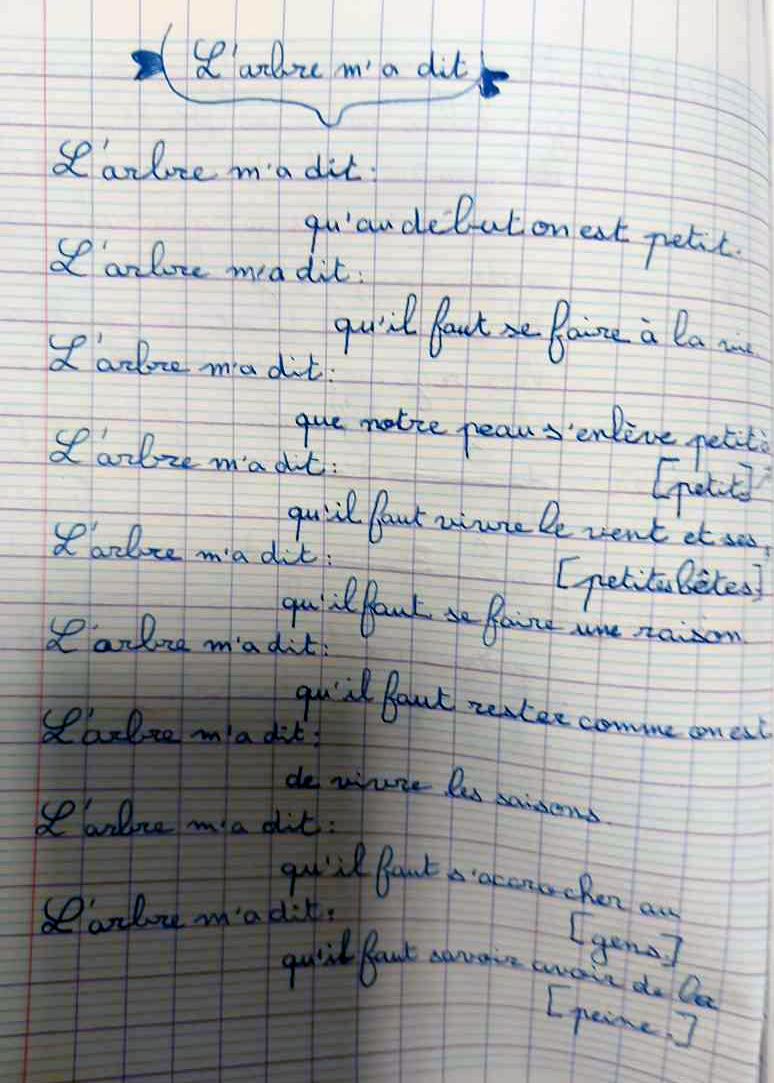 L'arbre m'a dit
L'arbre m'a dit:
qu'au début on est petit.
L'arbre m'a dit:
qu'il faut se faire à la vie.
L'arbre m'a dit:
que notre peau s'enlève petit à
[petit]
L'arbre m'a dit:
qu'il faut vivre le vent et ses
[petites bêtes]
L'arbre m'a dit:
qu'il faut se faire une raison.
L'arbre m'a dit:
qu'il faut rester comme on est
L'arbre m'a dit:
de vivre les saisons.
L'arbre m'a dit:
qu'il faut s'accrocher au
[gens.]
L'arbre m'a dit:
qu'il faut savoir avoir de la
[peine.]